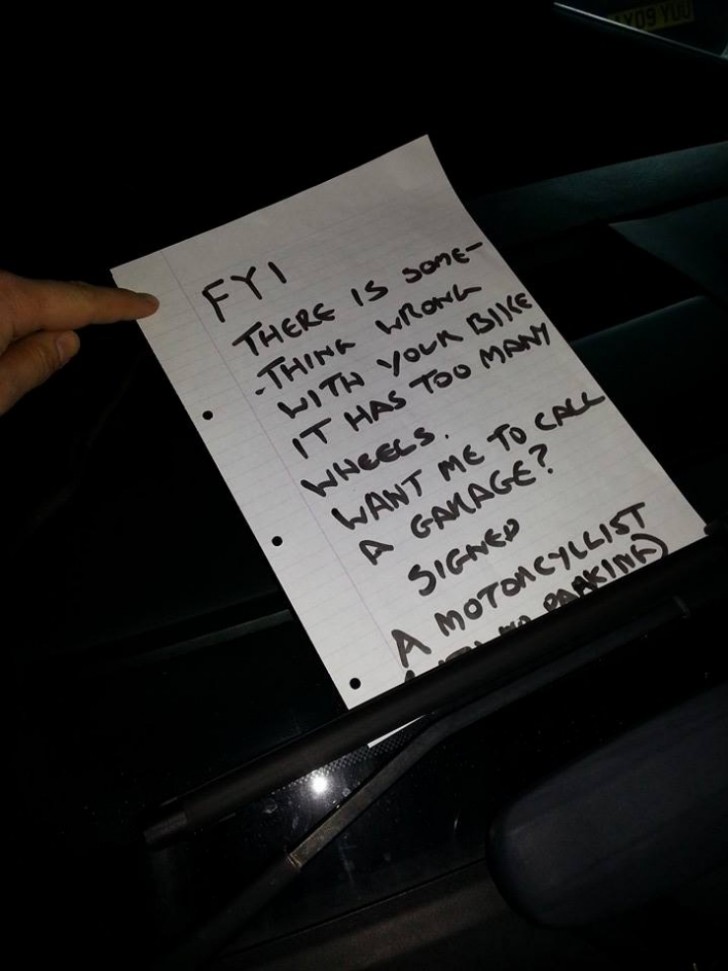 FYI
THERE IS SOME-
-THING WRONG
WITH YOUR BIKE
IT HAS TOO MANY
WHEELS.
WANT ME TO CALL
A GARAGE?
SIGNED
A MOTORCYCLIST
PARKING)